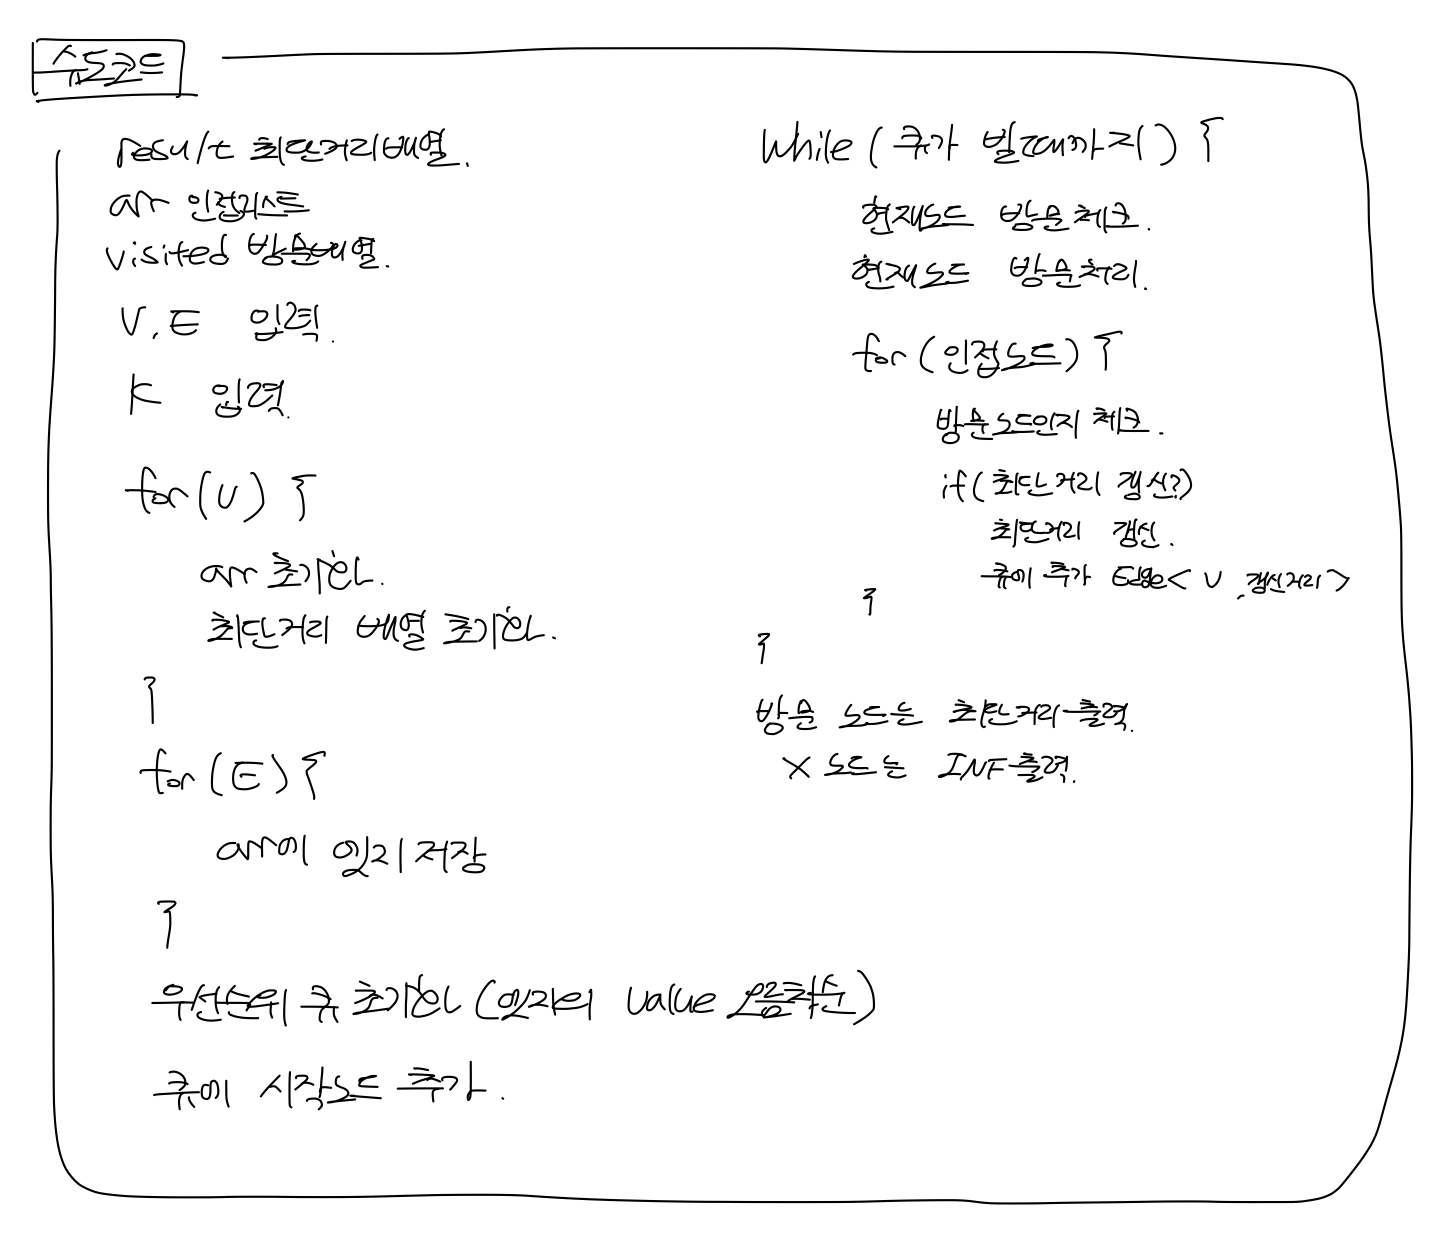 수도코드
result 최단거리배열.
arr 인접리스트
visited 방문배열.
V, E 입력.
K 입력.
for(V) {
arr 초기화.
최단거리 배열 초기화.
}
for(E) {
arr에 엣지 저장
}
우선순위 큐 초기화 (엣지의 value 오름차순)
큐에 시작노드 추가.
while (큐가 빌때까지) {
현재노드 방문체크.
현재노드 방문처리.
for (인접노드) {
방문노드인지 체크.
if(최단거리 갱신?)
최단거리 갱신.
큐에 추가 Edge< V, 갱신거리>
}
}
방문 노드는 최단거리출력.
X 노드는 INF출력.